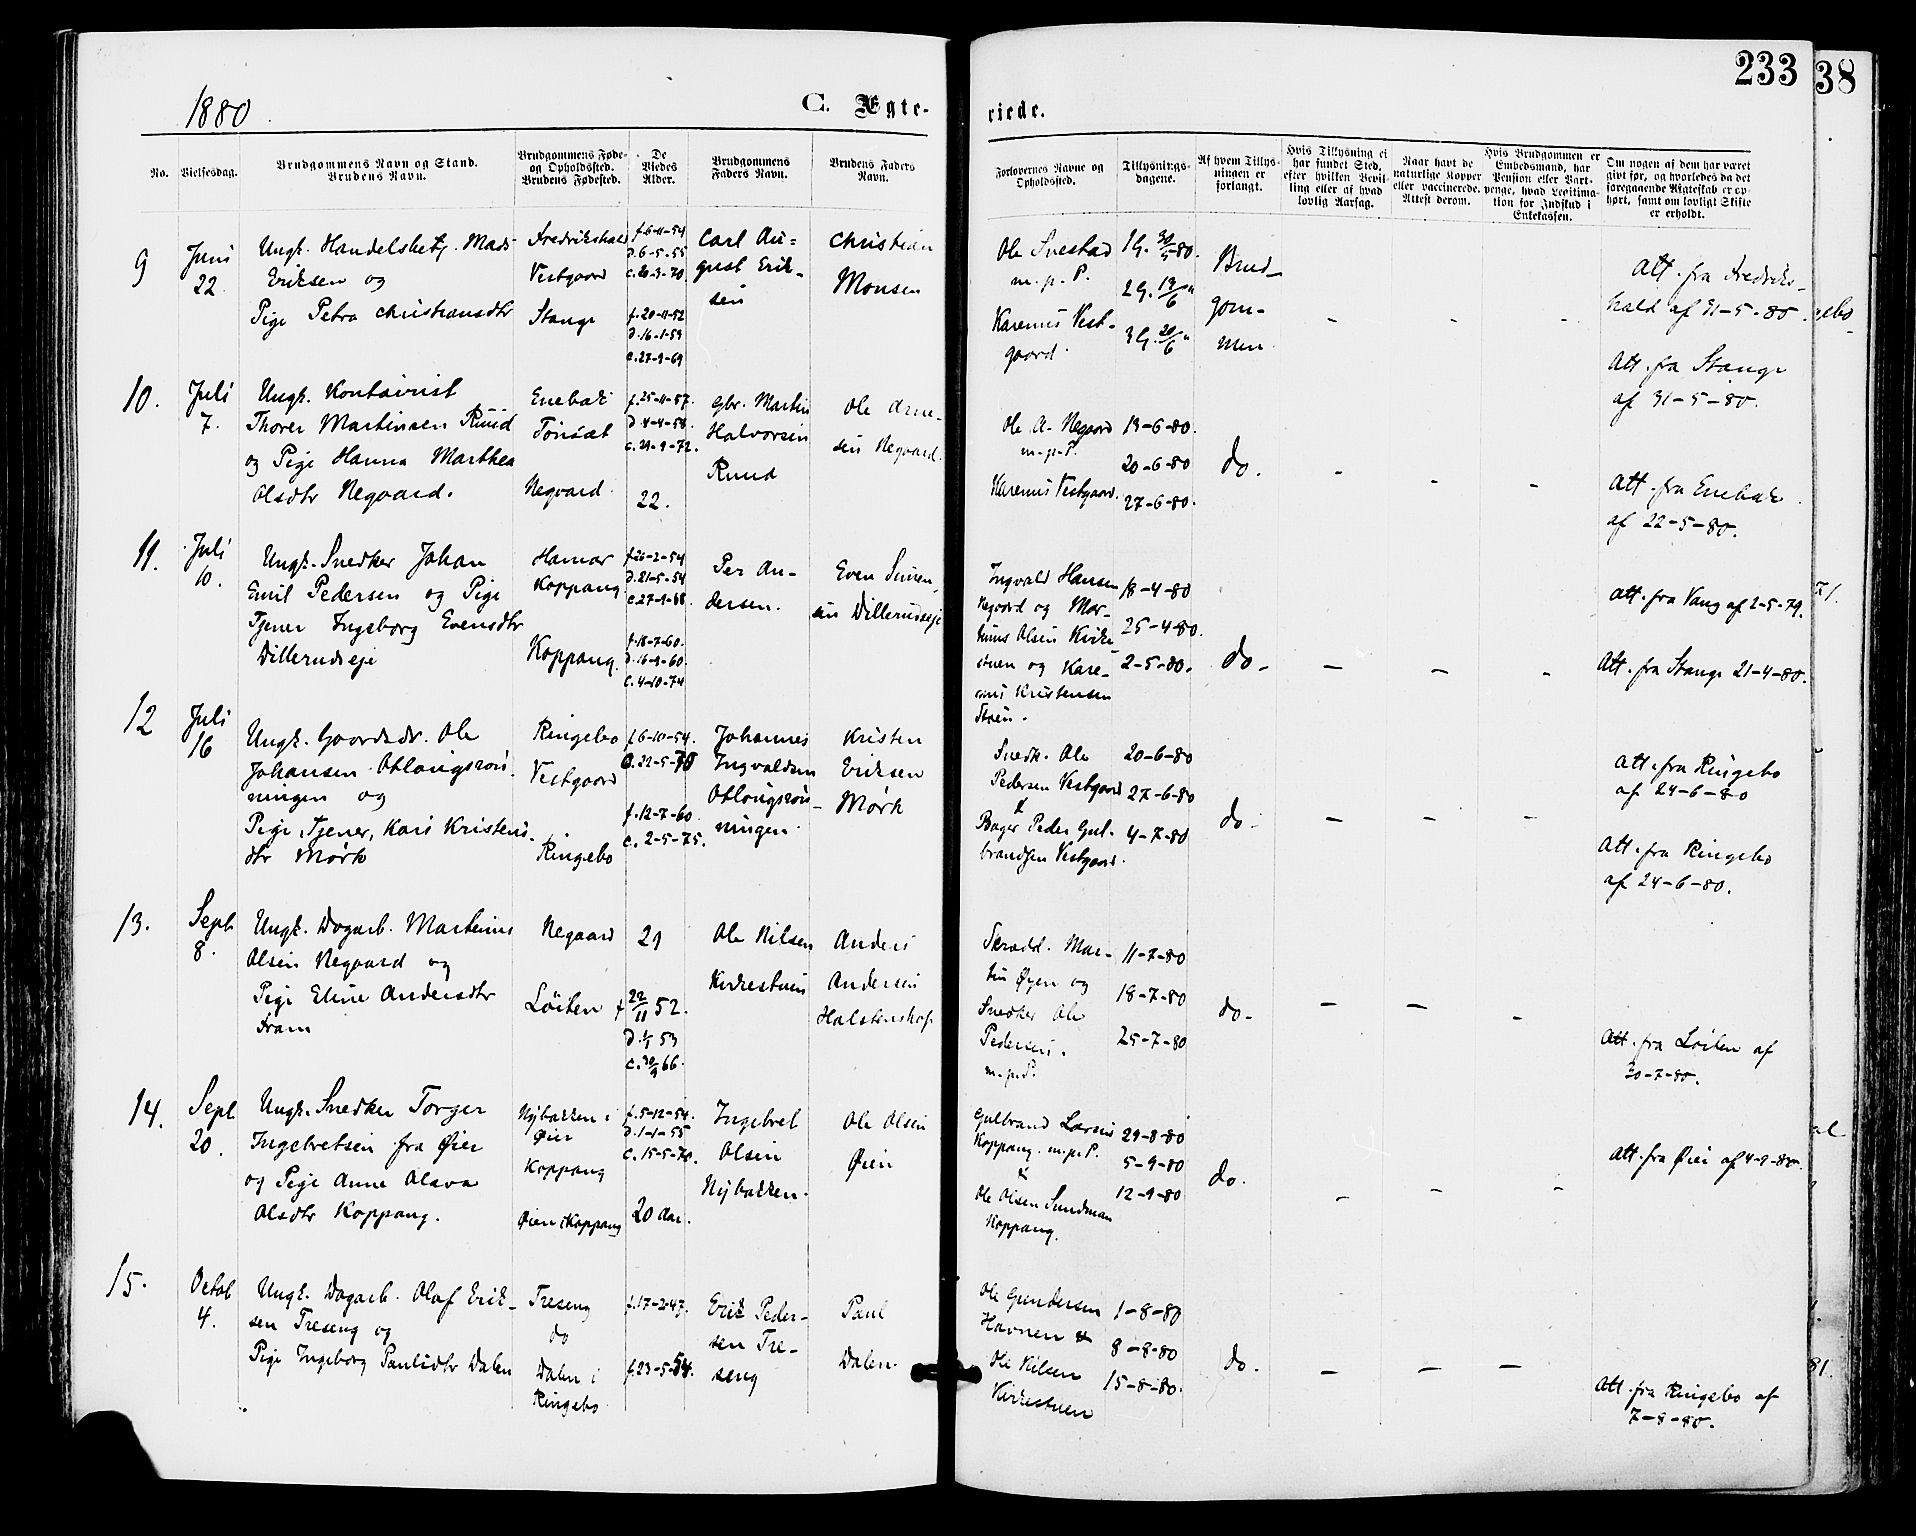 1880.
C. Egte-
viede.
233
38
No.
Vielsesdag.
Brudgommens Navn og Stand.
Brudens Navn.
Brudgommens Føde-
og Opholdssted.
Brudens Fødested.
De
Viedes
Alder.
Brudgommens
Faders Navn.
Brudens Faders
Navn.
Forlovernes Navne og
Opholdssted.
Tillysnings-
dagene.
Af hvem Tillys-
ningen er
forlangt.
Hvis Tillysning ei
har fundet Sted,
efter hvilken Bevil-
ling eller af hvad
lovlig Aarsag.
Naar havt de
naturlige Kopper
eller vaccinerede.
Attest derom.
Hvis Brudgommen er
Embedsmand, har
Pension eller Vart-
penge, hvad Legitima-
tion for Indskud i
Enkekassen.
Om nogen af dem har været
givt før, og hvorledes da det
foregaaende Ægteskab er op-
hørt, samt om lovligt Skifte
er erholdt.
9
Juni
22
Ungk. Handelsbetj. Mads
Eriksen og
Pige Petra Christiansdtr
Fredrikshald
Vestgaard
Stange
f. 6-11-54
d. 6-5-55
c. 20-3-70
f. 20-11-52
d. 16-1-53
c. 27-9-69
Carl Au-
gust Erik-
sen
Christian
Monsen
Ole Snestad
m. p. P.
Karenus Vest-
gaard.
1 G. 30/5-80.
2 G. 13/6 "
3 G. 20/6 "
Brud-
gom-
men
Att. fra Fredriks-
hald af 31-5-80.
Att. fra Stange
af 31-5-80.
10.
Juli
7.
Ungk. Kontorist
Thorer Martinsen Ruud
og Pige Hanna Marthea
Olsdtr Negaard.
Enebak
Tønsæt
Negaard
f. 25-11-57.
d. 4-4-58.
c. 29-9-72.
22.
gbr. Martin
Halvorsen
Ruud
Ole Arne-
sen Negaard.
Ole A. Negaard
m. p. P.
Karenus Vestgaard.
13-6-80.
20-6-80
27-6-80.
do.
Att. fra Enebak
af 22-5-80.
11.
Juli
10.
Ungk. Snedker Johan
Emil Pedersen og Pige
Tjener Ingeborg Evensdtr
Dillerudseje
Hamar
Koppang
Koppang
f. 26-2-54
d. 21-5-54
c. 27-9-68.
f. 18-7-60.
d. 16-9-60.
c. 4-10-74
Per An-
dersen.
Even Simen-
sen Dillerudseje
Ingvald Hansen
Negaard og Mar-
tinus Olsen Kirke-
stuen og Kare-
nus Kristensen
Støen.
18-4-80
25-4-80.
2-5-80.
do.
Att. fra Vang af 2-5-79.
Att. fra Stange 21-4-80.
12
Juli
16
Ungk. Gaardsdr. Ole
Johansen Oblongsrøn-
ningen og
Pige, Tjener, Kari Kristens-
dtr Mørk
Ringebo
Vestgaard
Ringebo
f. 6-10-54.
c. 22-5-70
f. 12-7-60.
c. 2-5-75.
Johannes
Ingvaldsen
Oblongsrøn-
ningen.
Kristen
Eriksen
Mørk
Snedk. Ole
Pedersen Vestgaard
&
Bager Peder Gul-
brandsen Vestgaard.
20-6-80
27-6-80
4-7-80
do.
Att. fra Ringebo
af 24-6-80
Att. fra Ringebo
af 24-6-80.
13.
Sept
8.
Ungk. Dagarb. Martinus
Olsen Negaard og
Pige Eline Andersdtr
Fram
Negaard
Løiten
29
f 22/11 52.
d. 1/1 53
c. 30/9 66.
Ole Nilsen
Kirkestuen
Anders
Andersen
Halstenshof.
Skrædd. Mar-
tin Øyen og
Snedker Ole
Pedersen.
m. p. P.
11-7-80
18-7-80
25-7-80
do.
Att. fra Løiten af
30-7-80.
14.
Sept
20.
Ungk. Snedker Torger
Ingebretsen fra Øier
og Pige Anne Olava
Olsdtr Koppang.
Nybakken i
Øier
Koppang
Øien i Koppang
f. 5-12-54.
d. 1-1-55
c. 15-5-70.
20 aar.
Ingebret
Olsen
Nybakken.
Ole Olsen
Øien
Gulbrand Larsen
Koppang. m. p. P.
&
Ole Olsen Sundman
Koppang.
29-8-80
5-9-80
12-9-80
do.
Att. fra Øier af 4-9-80.
15.
Octob
4.
Ungk. Dagarb. Olaf Erik-
sen Treseng og
Pige Ingeborg Paulsdtr Dalen
Treseng
do
Dalen i
Ringebo
f. 17-2-47.
f. 23-5-54.
Erik Peder-
sen Tre-
seng
Paul
Dalen.
Ole Gundersen
Havnen &
Ole Nilsen
Kirkestuen
1-8-80
8-8-80
15-8-80.
do.
Att. fra Ringebo af
7-8-80.